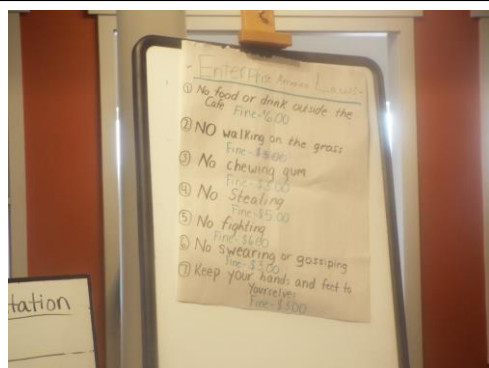 Laws
① No food or drink outside the
Cafe Fine-$6.00
② NO walking on the grass
Fine-$3.00
③ No chewing gum
Fine-$3.00
④ No Stealing
Fine-$5.00
⑤ No fighting
Fine-$6.00
⑥ No swearing or gossiping
Fine-$3.00
⑦ Keep your hands and feet to
Yourselves
Fine-$3.00
tation